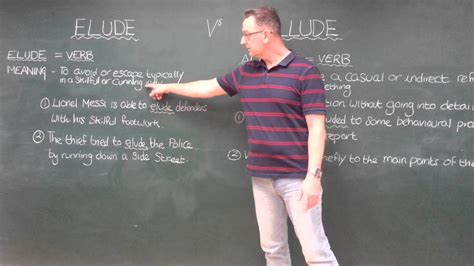 ELUDE Vs LUDE
ELUDE = VERB
MEANING - To avoid or escape typically
in a skilful or cunning way
① Lionel Messi is able to elude defenders
with his skilful footwork.
② The thief tried to elude the Police
by running down a side street.
= VERB
a casual or indirect ref
ething
tion without going into detai
uded to some behavioural pro
report
efly to the main points of the